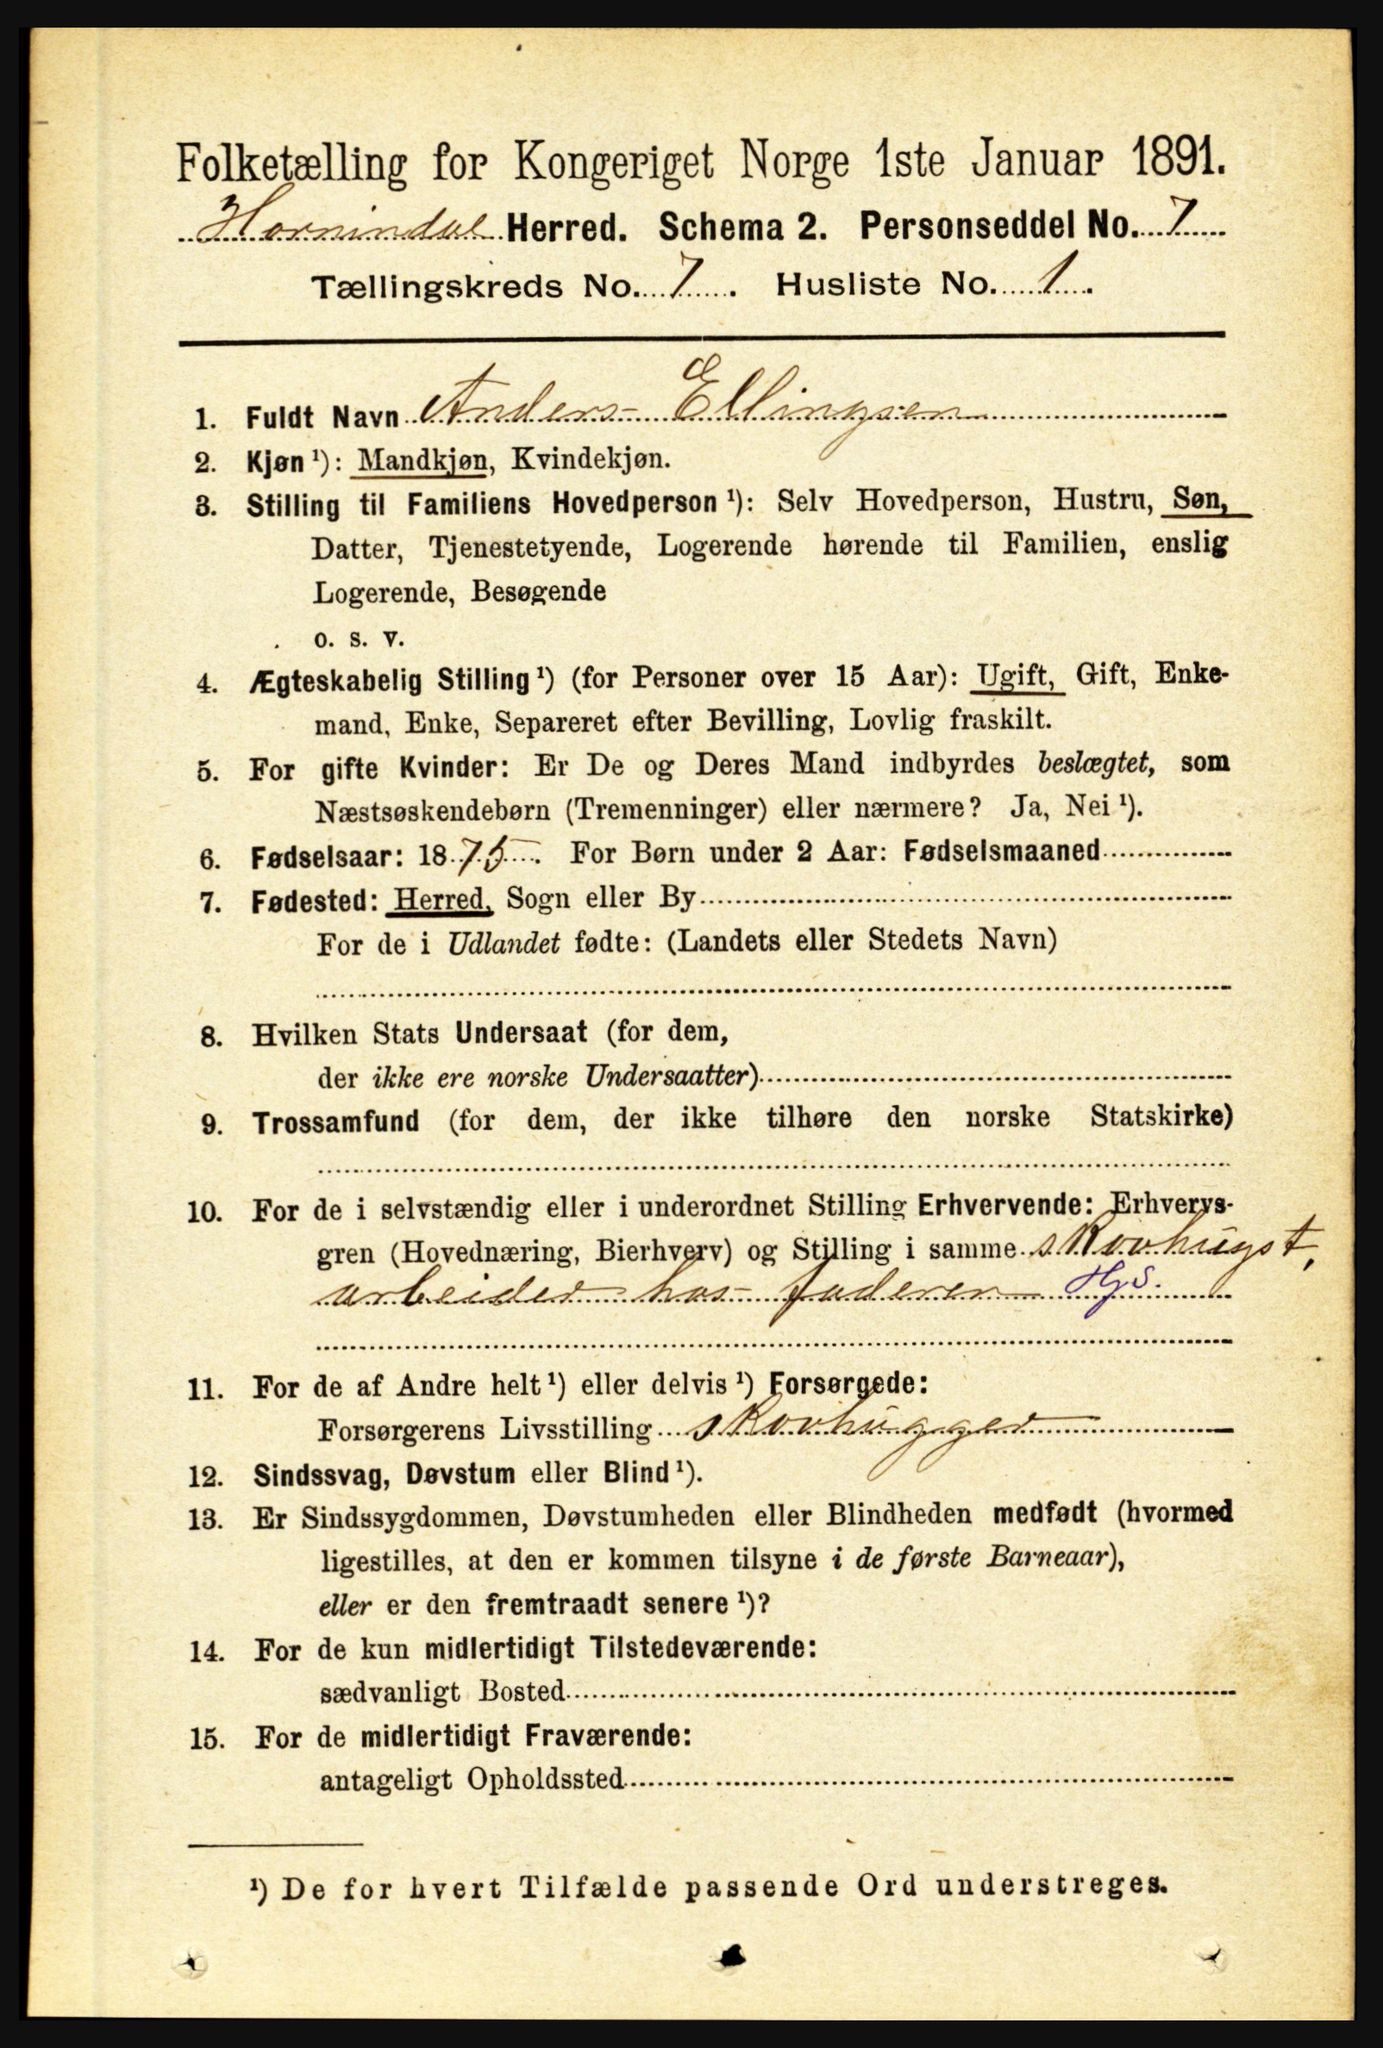 Folketælling for Kongeriget Norge 1ste Januar 1891.
Hornindal Herred. Schema 2. Personseddel No. 7
Tællingskreds No. 7. Husliste No. 1.
1. Fuldt Navn Anders Ellingsen
2. Kjøn ¹): Mandkjøn, Kvindekjøn.
3. Stilling til Familiens Hovedperson ¹): Selv Hovedperson, Hustru, Søn,
Datter, Tjenestetyende, Logerende hørende til Familien, enslig
Logerende, Besøgende
o. s. v.
4. Ægteskabelig Stilling ¹) (for Personer over 15 Aar): Ugift, Gift, Enke-
mand, Enke, Separeret efter Bevilling, Lovlig fraskilt.
5. For gifte Kvinder: Er De og Deres Mand indbyrdes beslægtet, som
Næstsøskendebørn (Tremenninger) eller nærmere? Ja, Nei ¹).
6. Fødselsaar: 1875. For Børn under 2 Aar: Fødselsmaaned
7. Fødested: Herred, Sogn eller By
For de i Udlandet fødte: (Landets eller Stedets Navn)
8. Hvilken Stats Undersaat (for dem,
der ikke ere norske Undersaatter)
9. Trossamfund (for dem, der ikke tilhøre den norske Statskirke)
10. For de i selvstændig eller i underordnet Stilling Erhvervende: Erhvervs-
gren (Hovednæring, Bierhverv) og Stilling i samme skovhugst,
arbeider hos faderen Hjs.
11. For de af Andre helt ¹) eller delvis ¹) Forsørgede:
Forsørgerens Livsstilling skovhugger
12. Sindssvag, Døvstum eller Blind ¹).
13. Er Sindssygdommen, Døvstumheden eller Blindheden medfødt (hvormed
ligestilles, at den er kommen tilsyne i de første Barneaar),
eller er den fremtraadt senere ¹)?
14. For de kun midlertidigt Tilstedeværende:
sædvanligt Bosted
15. For de midlertidigt Fraværende:
antageligt Opholdssted
¹) De for hvert Tilfælde passende Ord understreges.